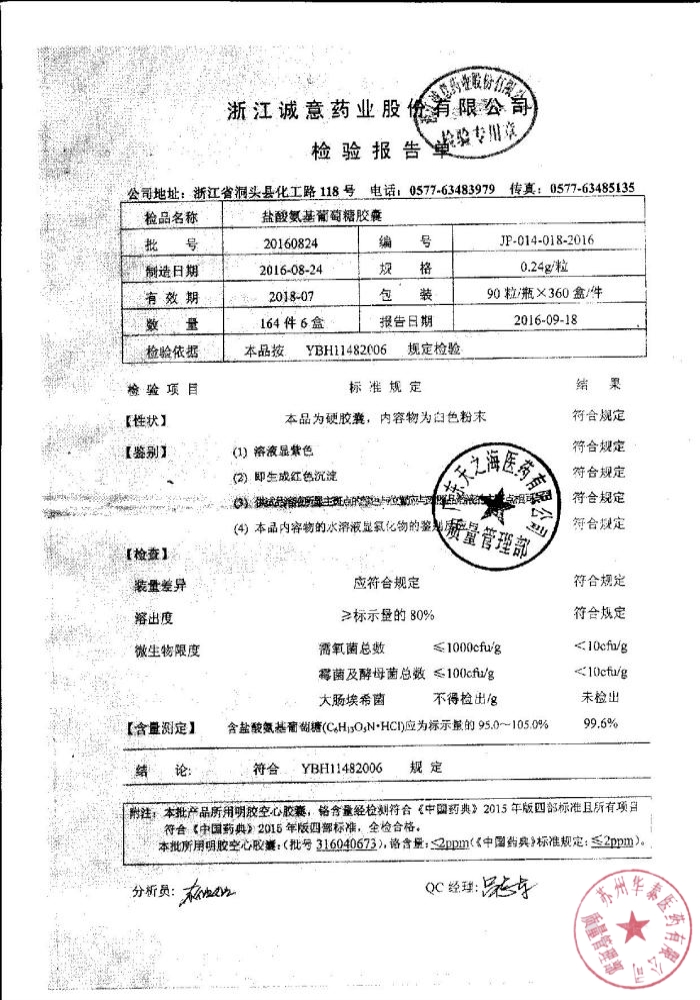 浙江诚意药业股份有限公司
检验专用章
检验报告单
公司地址：浙江省洞头县化工路 118 号 电话：0577-63483979 传真：0577-63485135
检品名称 盐酸氨基葡萄糖胶囊
批 号 20160824 编 号 JP-014-018-2016
制造日期 2016-08-24 规 格 0.24g/粒
有 效 期 2018-07 包 装 90 粒/瓶×360 盒/件
数 量 164 件 6 盒 报告日期 2016-09-18
检验依据 本品按 YBH11482006 规定检验
检 验 项 目 标 准 规 定 结 果
【性状】 本品为硬胶囊，内容物为白色粉末 符合规定
【鉴别】 (1) 溶液显紫色 符合规定
(2) 即生成红色沉淀 符合规定
(3) 符合规定
(4) 本品内容物的水溶液显氯化物的鉴别 符合规定
广东天之海医药有限公司
质量管理部
【检查】
装量差异 应符合规定 符合规定
溶出度 ≥标示量的 80% 符合规定
微生物限度 需氧菌总数 ≤1000cfu/g <10cfu/g
霉菌及酵母菌总数 ≤100cfu/g <10cfu/g
大肠埃希菌 不得检出/g 未检出
【含量测定】 含盐酸氨基葡萄糖(C₆H₁₃O₅N•HCl)应为标示量的 95.0～105.0% 99.6%
结 论: 符合 YBH11482006 规 定
附注：本批产品所用明胶空心胶囊，铬含量经检测符合《中国药典》2015 年版四部标准且所有项目
符合《中国药典》2015 年版四部标准，全检合格。
本批所用明胶空心胶囊:(批号 316040673),铬含量:≤2ppm(《中国药典》标准规定:≤2ppm)。
分析员: QC 经理:
苏州华泰医药有限公司